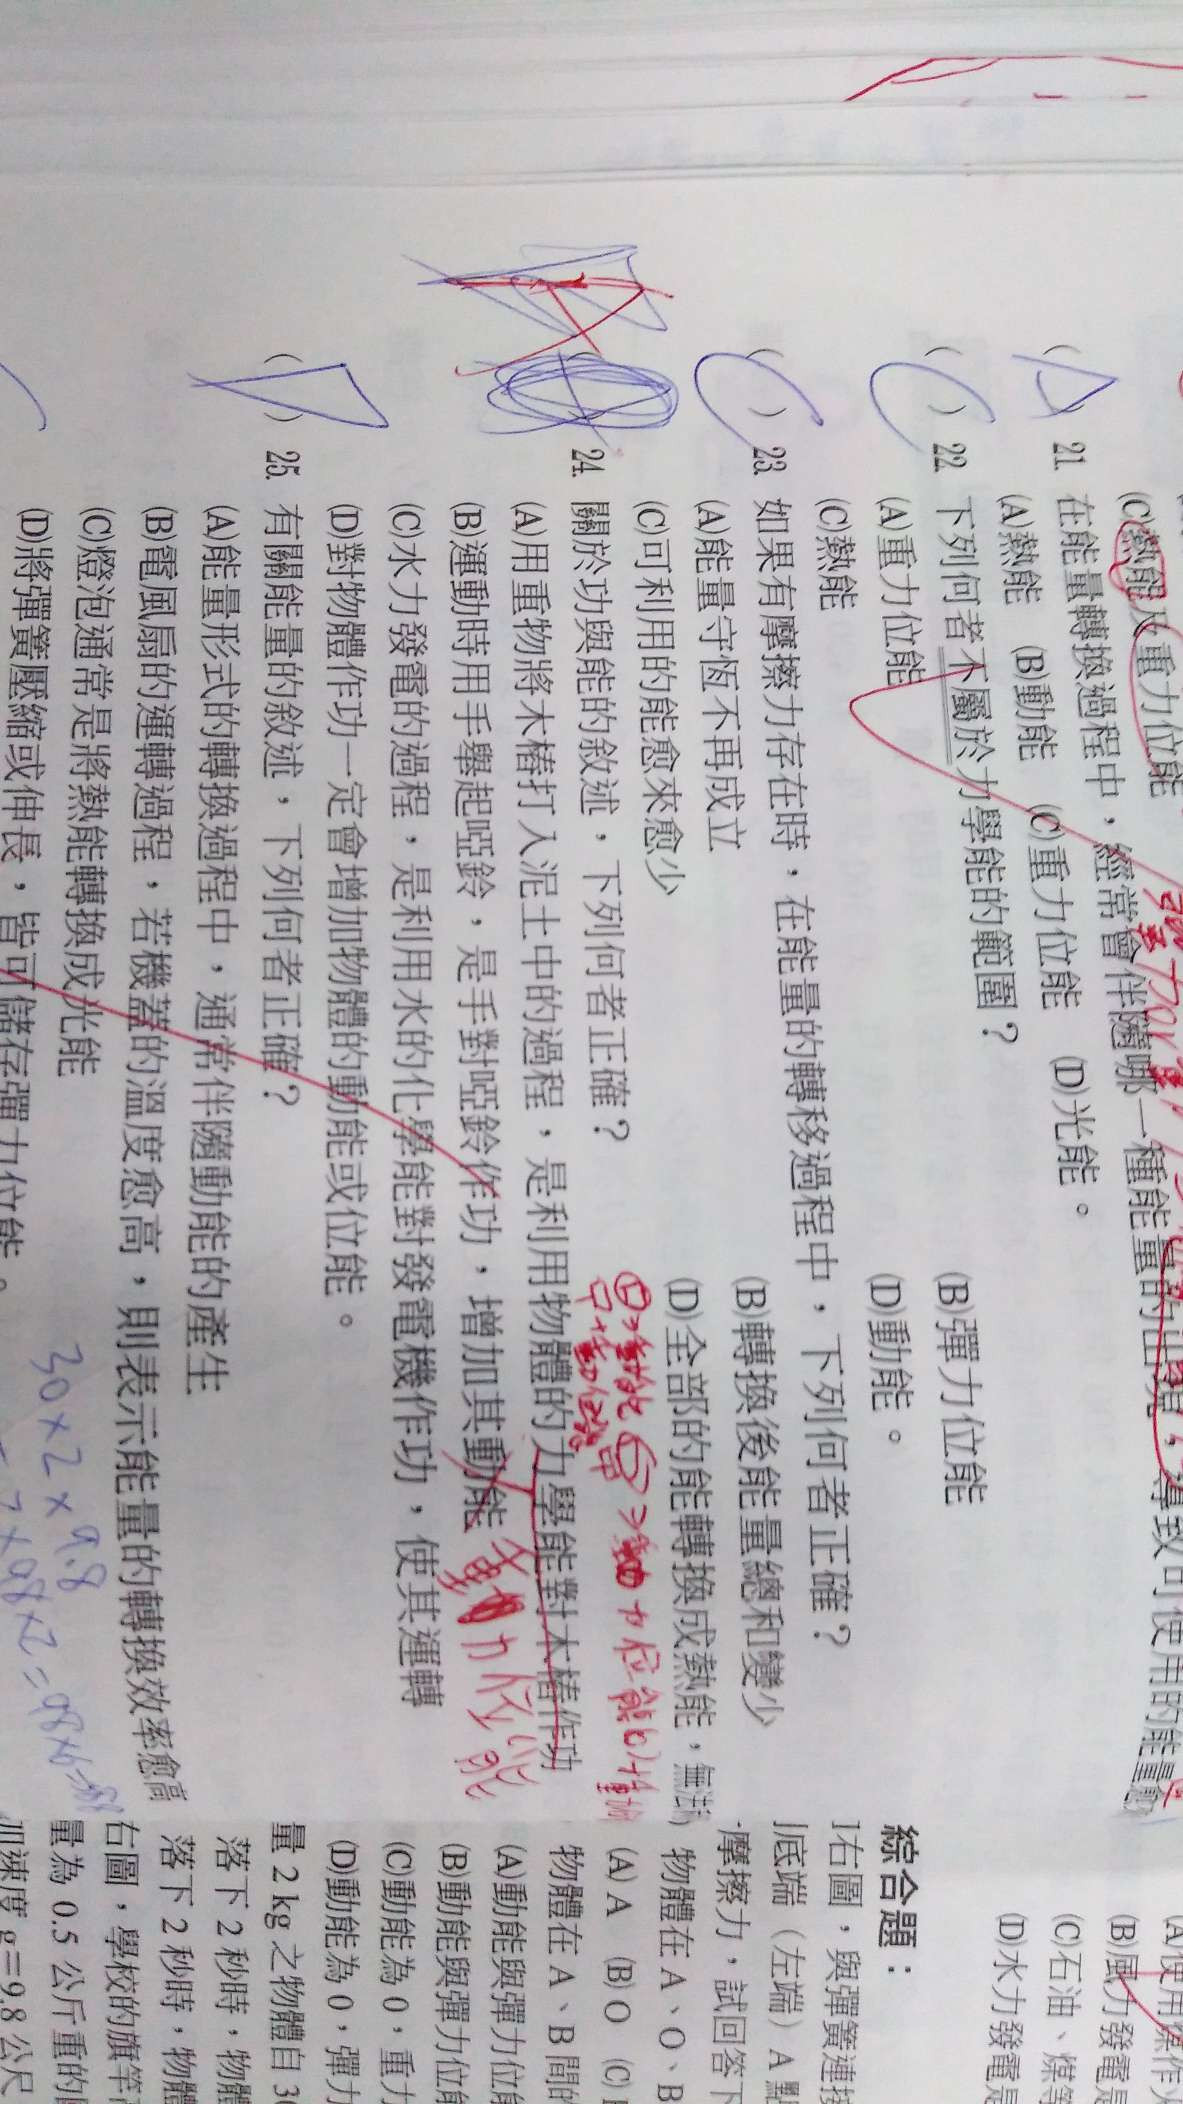 (C)熱能及重力位能
(A) 21. 在能量轉換過程中，經常會伴隨哪一種能量的出現，導致可使用的能量愈
(A)熱能 (B)動能 (C)重力位能 (D)光能。
(C) 22. 下列何者不屬於力學能的範圍？
(A)重力位能 (B)彈力位能
(C)熱能 (D)動能。
(C) 23. 如果有摩擦力存在時，在能量的轉移過程中，下列何者正確？
(A)能量守恆不再成立 (B)轉換後能量總和變少
(C)可利用的能愈來愈少 (D)全部的能轉換成熱能，無法
24. 關於功與能的敘述，下列何者正確？
(A)用重物將木樁打入泥土中的過程，是利用物體的力學能對木樁作功
(B)運動時用手舉起啞鈴，是手對啞鈴作功，增加其動能 重力位能
(C)水力發電的過程，是利用水的化學能對發電機作功，使其運轉
(D)對物體作功一定會增加物體的動能或位能。
(D) 25. 有關能量的敘述，下列何者正確？
(A)能量形式的轉換過程中，通常伴隨動能的產生
(B)電風扇的運轉過程，若機蓋的溫度愈高，則表示能量的轉換效率愈高
(C)燈泡通常是將熱能轉換成光能
(D)將彈簧壓縮或伸長，皆可儲存彈力位能。
30×2×9.8
(B)風力發電是
(C)石油、煤等
(D)水力發電是
綜合題：
右圖，與彈簧連接
底端（左端）A 點
摩擦力，試回答下
物體在 A、O、B
(A) A (B) O (C)
物體在 A、B 間的
(A)動能與彈力位能
(B)動能與彈力位能
(C)動能為 0，重力
(D)動能為 0，彈力
量 2 kg 之物體自 30
落下 2 秒時，物體
落下 2 秒時，物體
右圖，學校的旗竿
量為 0.5 公斤重的
加速度 g＝9.8 公尺